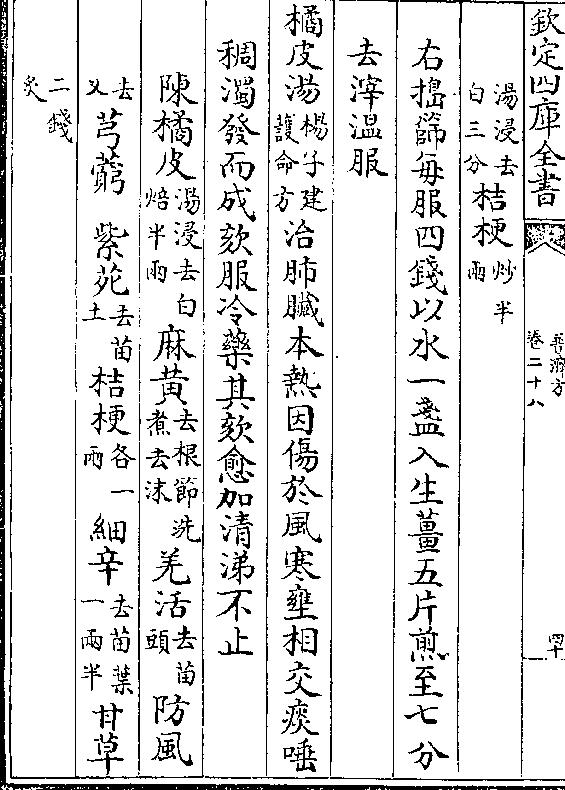 欽定四庫全書
普濟方
卷二十八
四十一
湯浸去白三分桔梗炒半兩
右擣篩每服四錢以水一盞入生薑五片煎至七分
去滓溫服
橘皮湯楊子建護命方治肺臟本熱因傷於風寒壅相交痰唾
稠濁發而成欬服冷藥其欬愈加清涕不止
陳橘皮湯浸去白焙半兩麻黃去根節洗煮去沫羌活去苗頭防風
去叉芎藭紫菀去苗土桔梗各一兩細辛去苗葉一兩半甘草
二錢炙